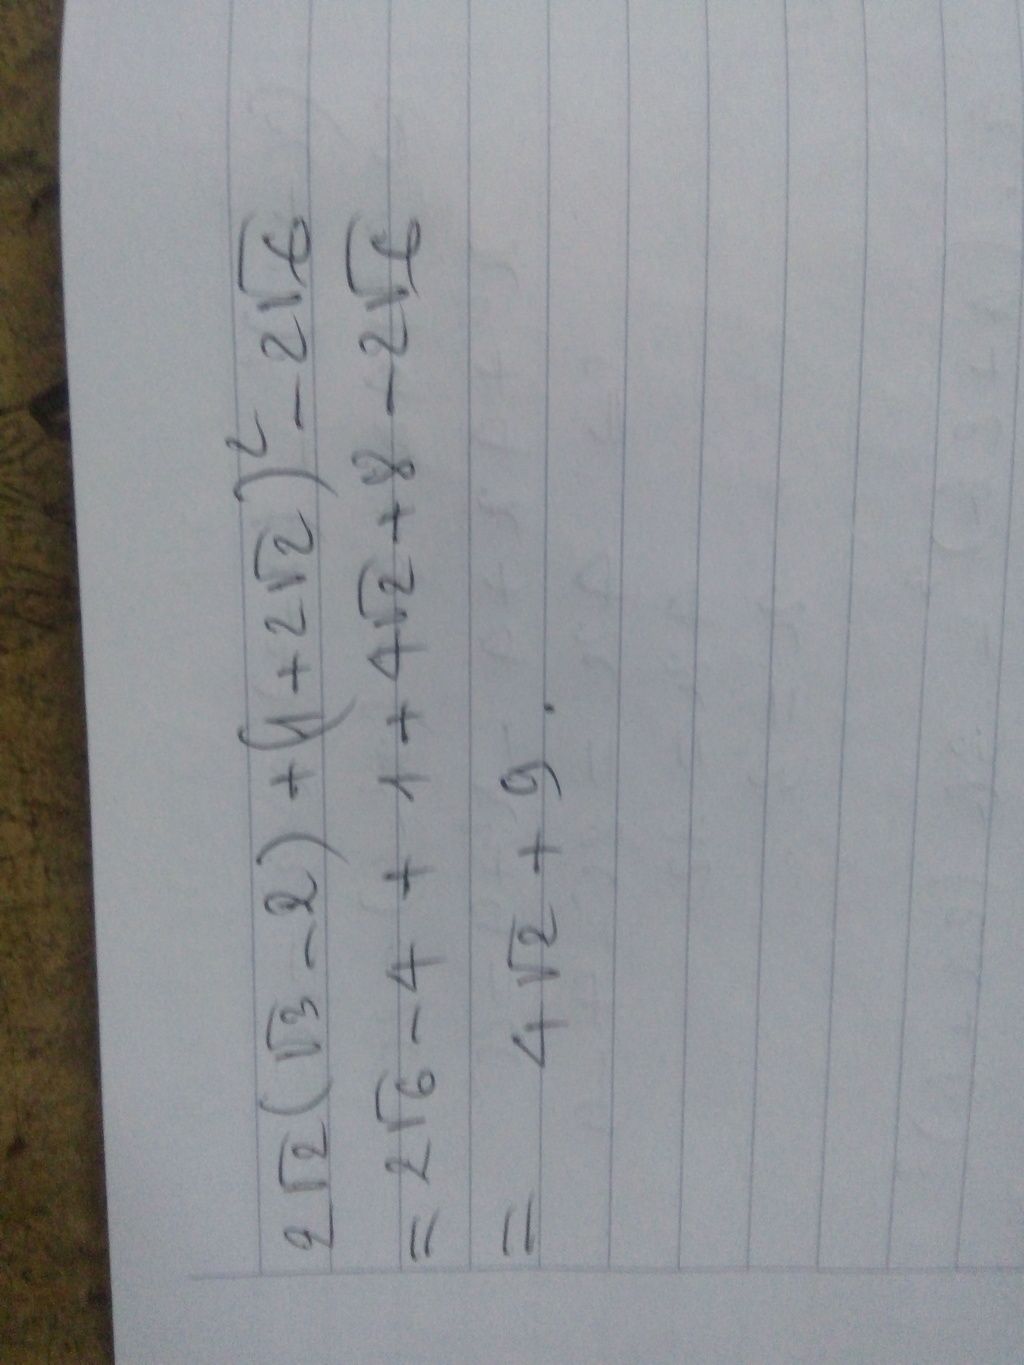 2√2(√3-2)+(1+2√2)²-2√6
=2√6-4+1+4√2+8-2√6
= 4√2+9.